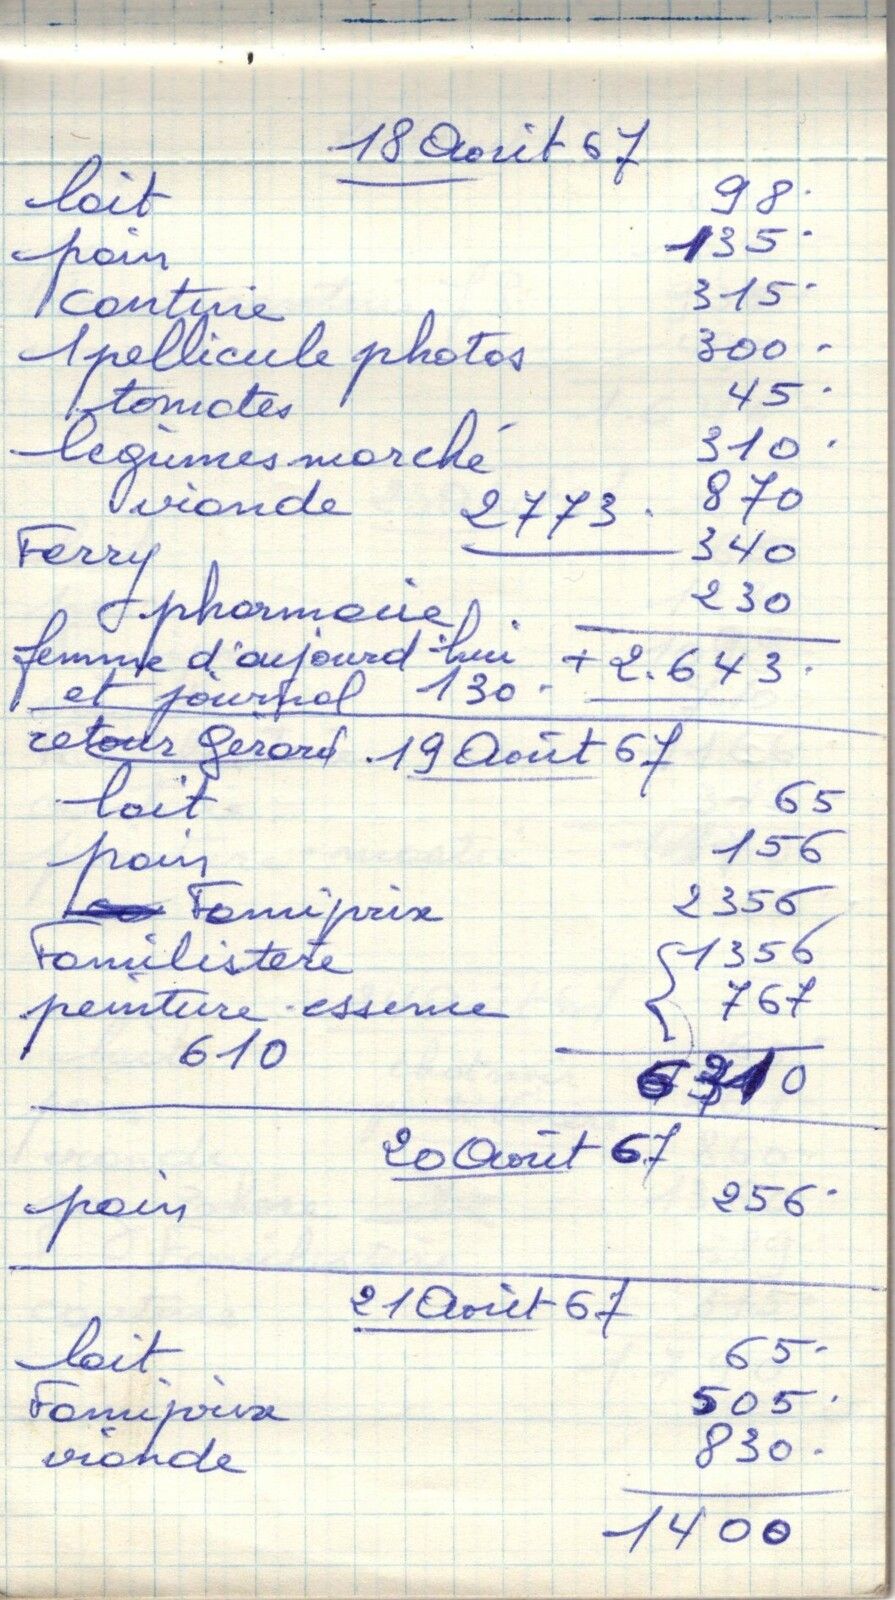 18 Août 67
lait 98.
pain 135.
cantine 315.
1 pellicule photos 300.
tomates 45.
légumes marché 310.
viande 2773. 870
Ferry 340
pharmacie 230
femme d'aujourd'hui + 2.643.
et journal 130.
retour Gérard 19 Août 67
lait 65
pain 156
Famiprix 2356
Familistère 1356
peinture. essence 767
610
6310
20 Août 67
pain 256.
21 Août 67
lait 65.
Famiprix 505.
viande 830.
1400